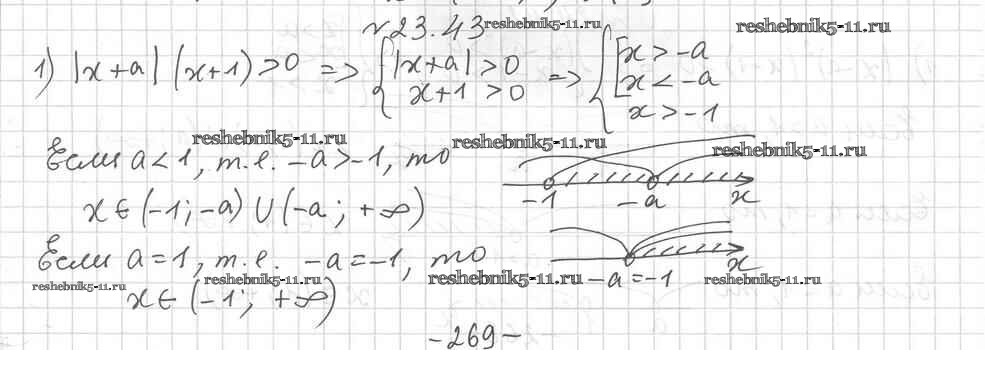 №23.43 reshebnik5-11.ru reshebnik5-11.ru
1) |x+a| (x+1) > 0 => { |x+a| > 0 ; x+1 > 0 => { [ x > -a ; x < -a ; x > -1
reshebnik5-11.ru reshebnik5-11.ru reshebnik5-11.ru
Если a < 1, т.е. -a > -1, то
-1 -a x
x ∈ (-1; -a) ∪ (-a; +∞)
Если a = 1, т.е. -a = -1, то
x
reshebnik5-11.ru reshebnik5-11.ru reshebnik5-11.ru -a = -1 reshebnik5-11.ru
x ∈ (-1; +∞)
-269-